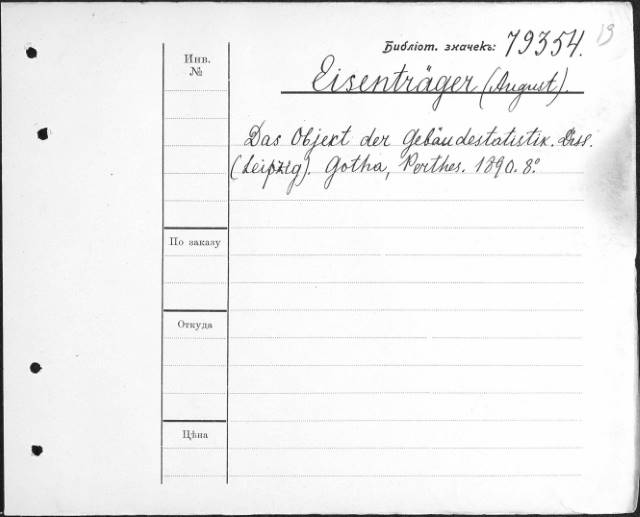 19
Библiот. значекъ: 79354.
Инв.
№
Eisenträger (August).
Das Objekt der Gebäudestatistik. Diss.
(Leipzig). Gotha, Perthes. 1890. 8°
По заказу
Откуда
Цѣна